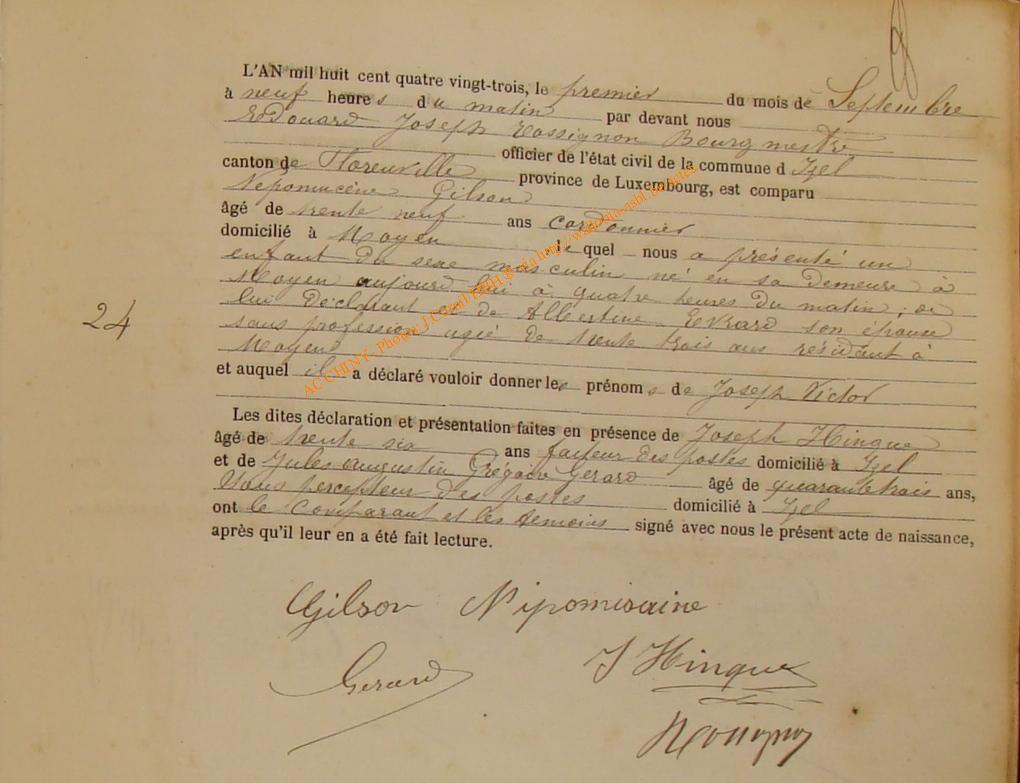 L'AN mil huit cent quatre vingt-trois, le premier du mois de Septembre
à neuf heures du matin par devant nous
Edouard Joseph Rossignon Bourgmestre
officier de l'état civil de la commune d Izel
canton de Florenville province de Luxembourg, est comparu
Népomucène Gilson
âgé de trente neuf ans cordonnier
domicilié à Moyen le quel nous a présenté un
enfant du sexe masculin né en sa demeure à
Moyen aujourd'hui à quatre heures du matin, de
24
lui déclarant et de Albertine Evrard son épouse
sans profession agée de trente trois ans résidant à
Moyen
et auquel il a déclaré vouloir donner les prénoms de Joseph Victor
Les dites déclaration et présentation faites en présence de Joseph Hinque
âgé de trente six ans facteur des postes domicilié à Izel
et de Jules Augustin Grégoire Gerard âgé de quarante trois ans,
percepteur des postes domicilié à Izel
ont le comparant et les témoins signé avec nous le présent acte de naissance,
après qu'il leur en a été fait lecture.
Gilson Nipomisaine
J Hinque
Gerard
AC CHINY - Photos J.C.